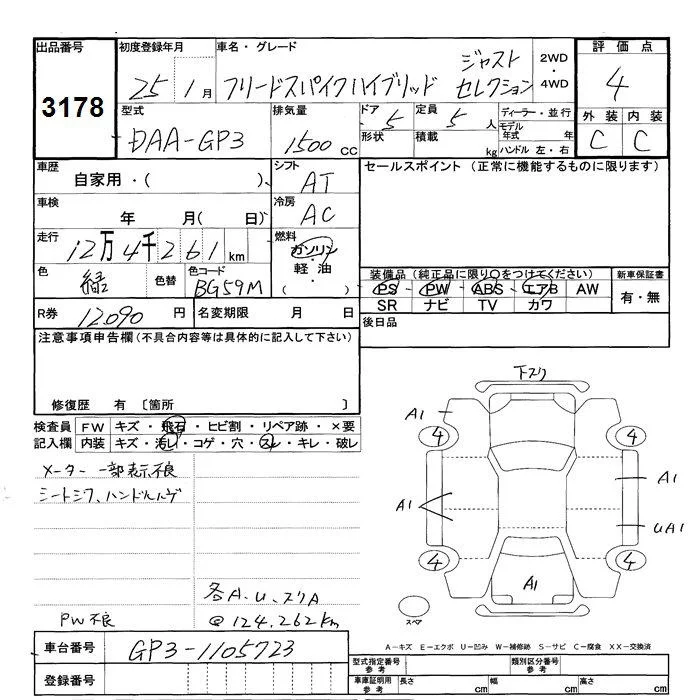 出品番号
3178
初度登録年月
25年1月
車名・グレード
フリードスパイクハイブリッド ジャストセレクション
2WD・4WD
評価点
4
外装 内装
C C
型式
DAA-GP3
排気量
1500cc
ドア 5
形状
定員 5人
積載 kg
ディーラー・並行
モデル年式 年
ハンドル 左・右
車歴
自家用・( )
シフト
AT
セールスポイント (正常に機能するものに限ります)
車検
年 月( 日)
冷房
AC
走行
12万4千261km
燃料
ガソリン
軽・油
( )
色
緑
色替
色コード
BG59M
装備品(純正品に限り○をつけてください)
PS PW ABS エアB AW
SR ナビ TV カワ
新車保証書
有・無
R券 12,090円
名変期限 月 日
後日品
注意事項申告欄(不具合内容等は具体的に記入して下さい)
修復歴 有 〔箇所 〕
検査員記入欄
FW キズ・飛石・ヒビ割・リペア跡・×要
内装 キズ・汚れ・コゲ・穴・スレ・キレ・破レ
メーター 一部表示不良
シートシワ、ハンドル
各A.U.スリA
PW不良
@124,262km
下スリ
A1
4 4
A1
A1
UA1
4 4
A1
スペア
A-キズ E-エクボ U-凹み W-補修跡 S-サビ C-腐食 XX-交換済
車台番号
GP3-1105723
登録番号
型式指定番号 参考
類別区分番号 参考
車庫証明用 参考
長さ cm 幅 cm 高さ cm